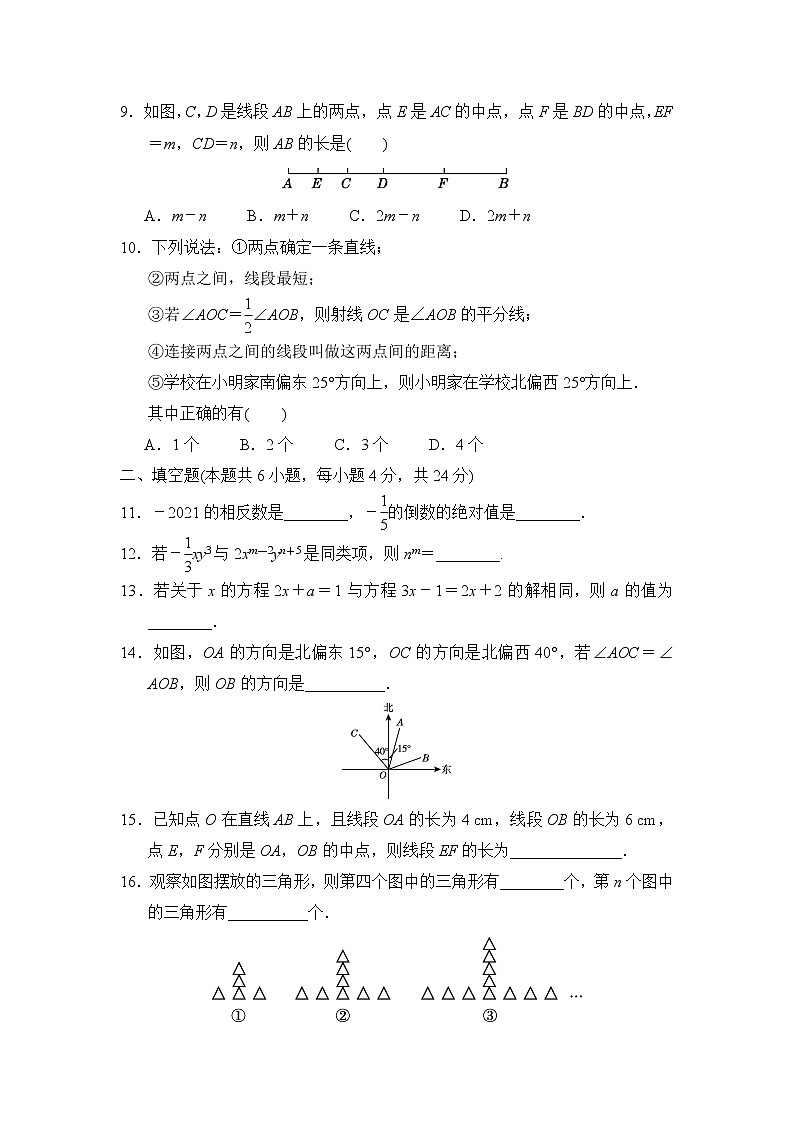 9．如图，C，D是线段AB上的两点，点E是AC的中点，点F是BD的中点，EF
＝m，CD＝n，则AB的长是(　　)
A E C D F B
A．m－n　　B．m＋n　　C．2m－n　　D．2m＋n
10．下列说法：①两点确定一条直线；
②两点之间，线段最短；
③若∠AOC＝1/2∠AOB，则射线OC是∠AOB的平分线；
④连接两点之间的线段叫做这两点间的距离；
⑤学校在小明家南偏东25°方向上，则小明家在学校北偏西25°方向上．
其中正确的有(　　)
A．1个　　B．2个　　C．3个　　D．4个
二、填空题(本题共6小题，每小题4分，共24分)
11．－2021的相反数是________，－1/5的倒数的绝对值是________．
12．若－1/3xy³与2xᵐ⁻²yⁿ⁺⁵是同类项，则nᵐ＝________.
13．若关于x的方程2x＋a＝1与方程3x－1＝2x＋2的解相同，则a的值为
________．
14．如图，OA的方向是北偏东15°，OC的方向是北偏西40°，若∠AOC＝∠
AOB，则OB的方向是__________．
北
A
C
40° 15°
B
O 东
15．已知点O在直线AB上，且线段OA的长为4 cm，线段OB的长为6 cm，
点E，F分别是OA，OB的中点，则线段EF的长为______________．
16．观察如图摆放的三角形，则第四个图中的三角形有________个，第n个图中
的三角形有__________个．
…
① ② ③